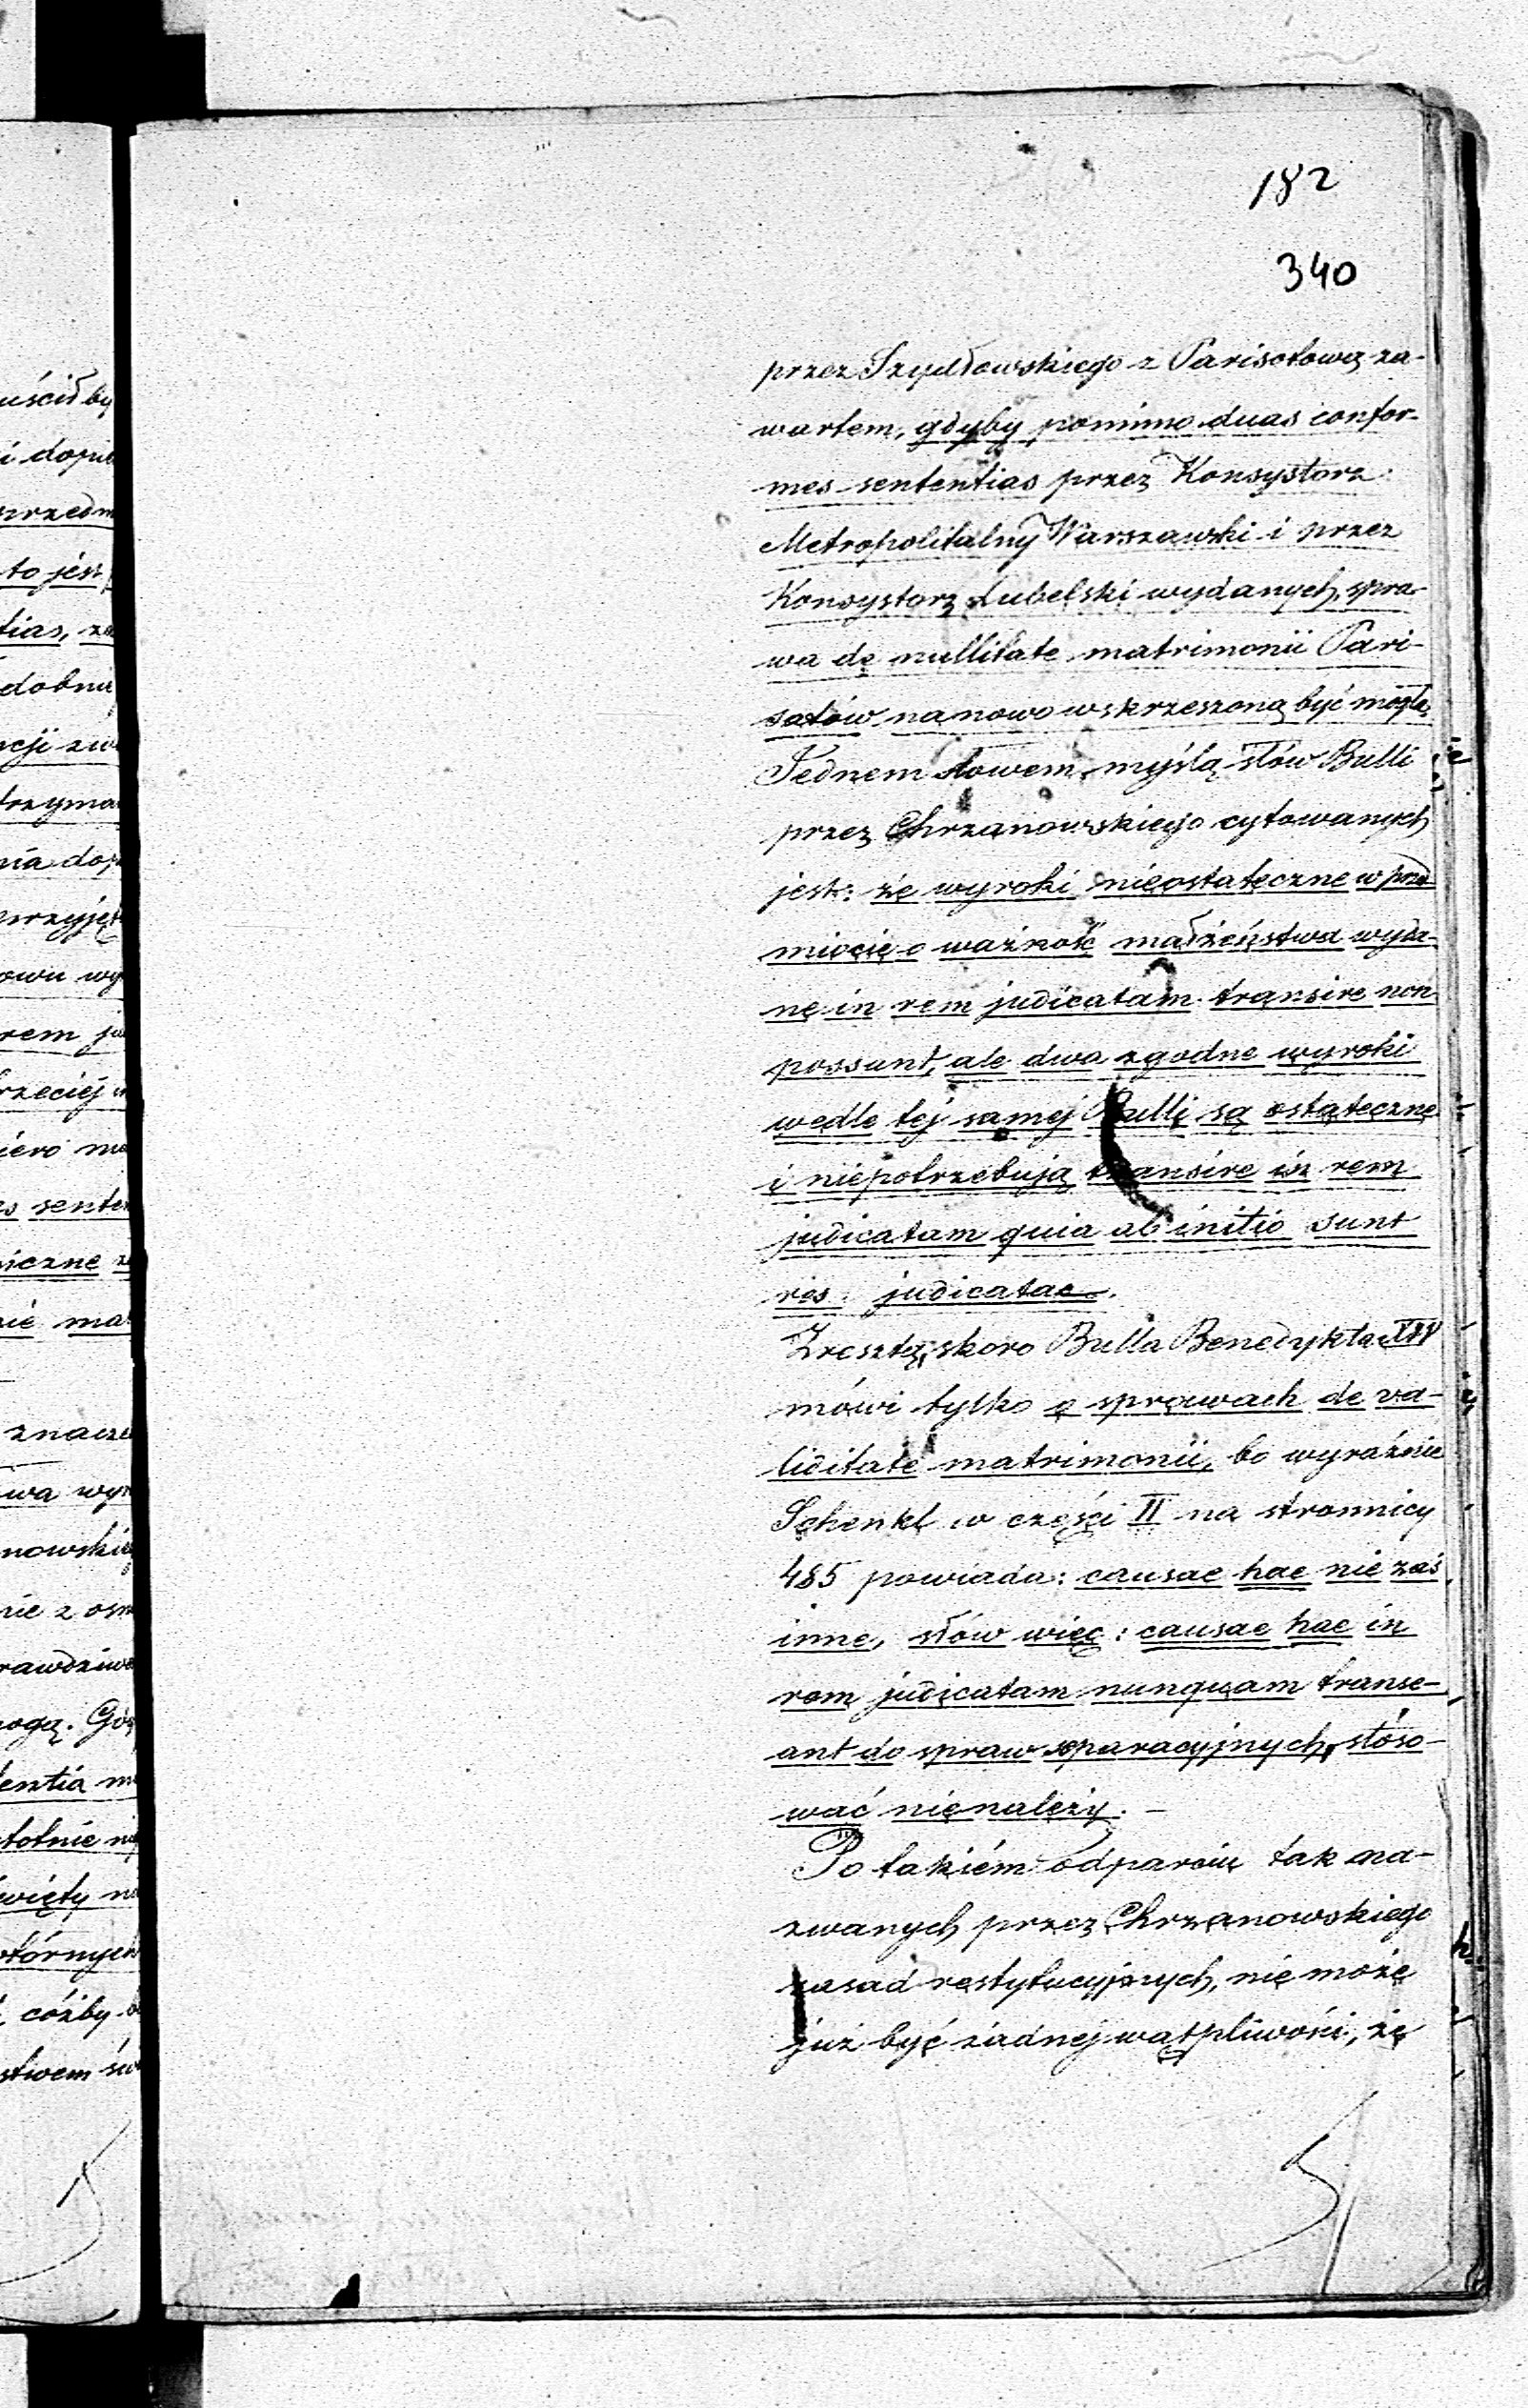 182
340
przez Szydłowskiego z Parisotową za-
wartem, gdyby pomimo duas confor-
mes sententias przez Konsystorz
Metropolitalny Warszawski i przez
Konsystorz Lubelski wydanych, spra-
wa de nullitate matrimonii Pari-
sotów na nowo wskrzeszoną być mogła.
Jednem słowem, myślą słów Bulli
przez Chrzanowskiego cytowanych
jest: że wyroki nieostateczne w przed
miocie o ważność małżeństwa wyda-
ne in rem judicatam transire non
possunt, ale dwa zgodne wyroki
wedle tej samej Bulli są ostateczne
i niepotrzebują transire in rem
judicatam quia ab initio sunt
res judicatae.
Zresztą, skoro Bulla Benedykta XIV
mówi tylko o sprawach de va-
liditate matrimonii, bo wyraźnie
Schenkl w części II na stronnicy
485 powiada: causae hae nie zaś
inne, słów więc: causae hae in
rem judicatam nunquam transe-
ant do spraw separacyjnych, stóso-
wać nienależy. -
Po takiém odparciu tak na-
zwanych przez Chrzanowskiego
zasad restytucyjnych, nie może
już być żadnej wątpliwości, że
uścił by
i dopie
przedm
to jést
tias,
dobnie
cji zw
trzyma
nia dop
przyjęt
owu wy
rem ju
trzeciej
iero mo
s senten
iczne
nie mat
znacze
wa wyr
nowskie
nie z osn
rawdziwe
mogą. Gdy
tentia
totnie nie
więty
tórnych
cóżby
stwem